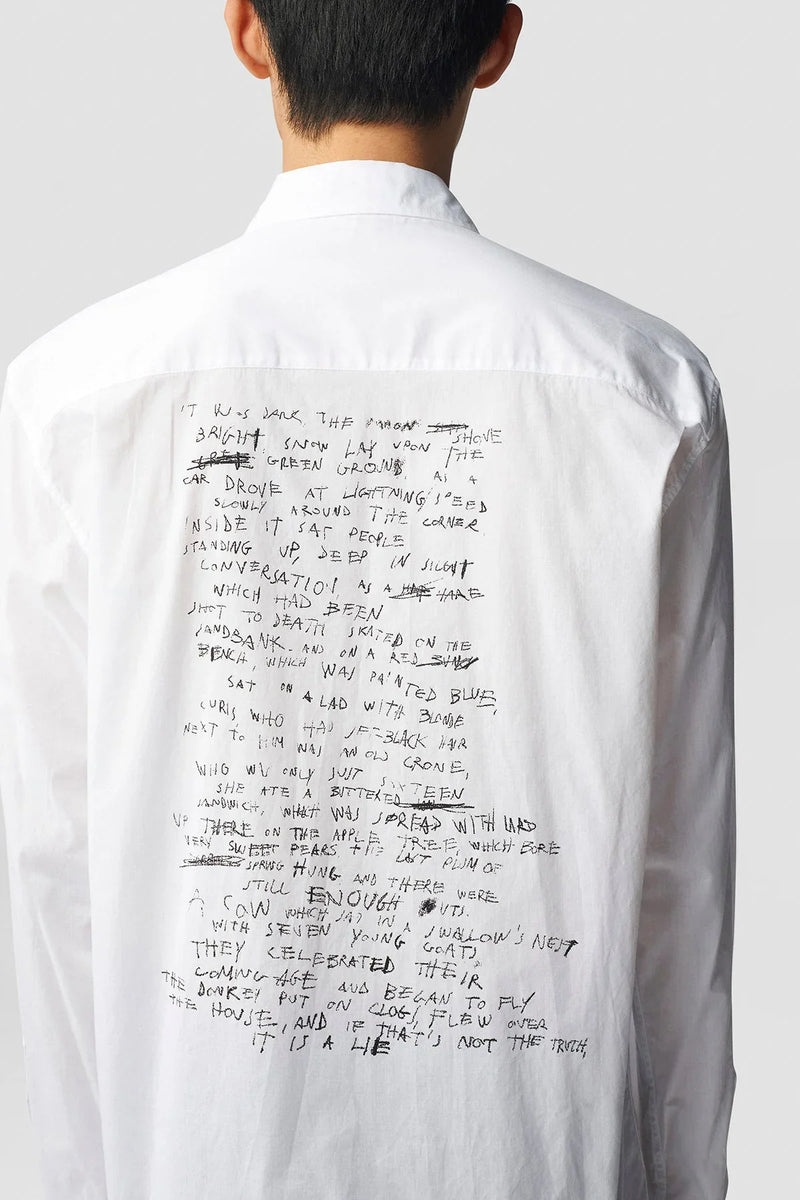 IT WAS DARK, THE MOON SHONE
BRIGHT, SNOW LAY UPON THE
GREEN GROUND, AS A
CAR DROVE AT LIGHTNING SPEED
SLOWLY AROUND THE CORNER
INSIDE IT SAT PEOPLE
STANDING UP, DEEP IN SILENT
CONVERSATION, AS A HARE
WHICH HAD BEEN
SHOT TO DEATH SKATED ON THE
SANDBANK. AND ON A RED
BENCH, WHICH WAS PAINTED BLUE,
SAT ON A LAD WITH BLONDE
CURLS, WHO HAD JET-BLACK HAIR
NEXT TO HIM WAS AN OLD CRONE,
WHO WAS ONLY JUST SIXTEEN
SHE ATE A BUTTERED
SANDWICH, WHAT WAS SPREAD WITH LARD
UP THERE ON THE APPLE TREE, WHICH BORE
VERY SWEET PEARS THE LAST PLUM OF
SPRING HUNG AND THERE WERE
STILL ENOUGH NUTS.
A COW WHICH SAT IN A SWALLOW'S NEST
WITH SEVEN YOUNG GOATS
THEY CELEBRATED THEIR
COMING AGE AND BEGAN TO FLY
THE DONKEY PUT ON CLOGS, FLEW OVER
THE HOUSE, AND IF THAT'S NOT THE TRUTH,
IT IS A LIE